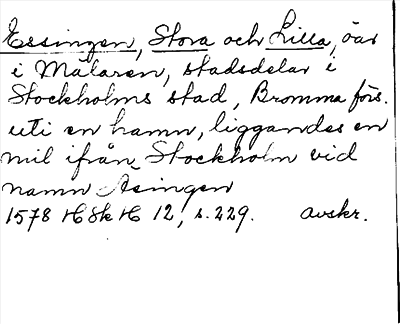 Essingen, Stora och Lilla, öar
i Mälaren, stadsdelar i
Stockholms stad, Bromma förs.
uti en hamn, liggandes en
mil ifrån Stockholm vid
namn Asingen
1578 HSkH 12, s. 229. avskr.